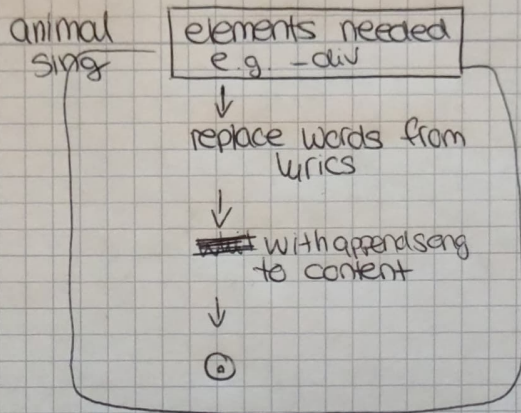 animal
sing
elements needed
e.g. -div
replace words from
lyrics
with append song
to content